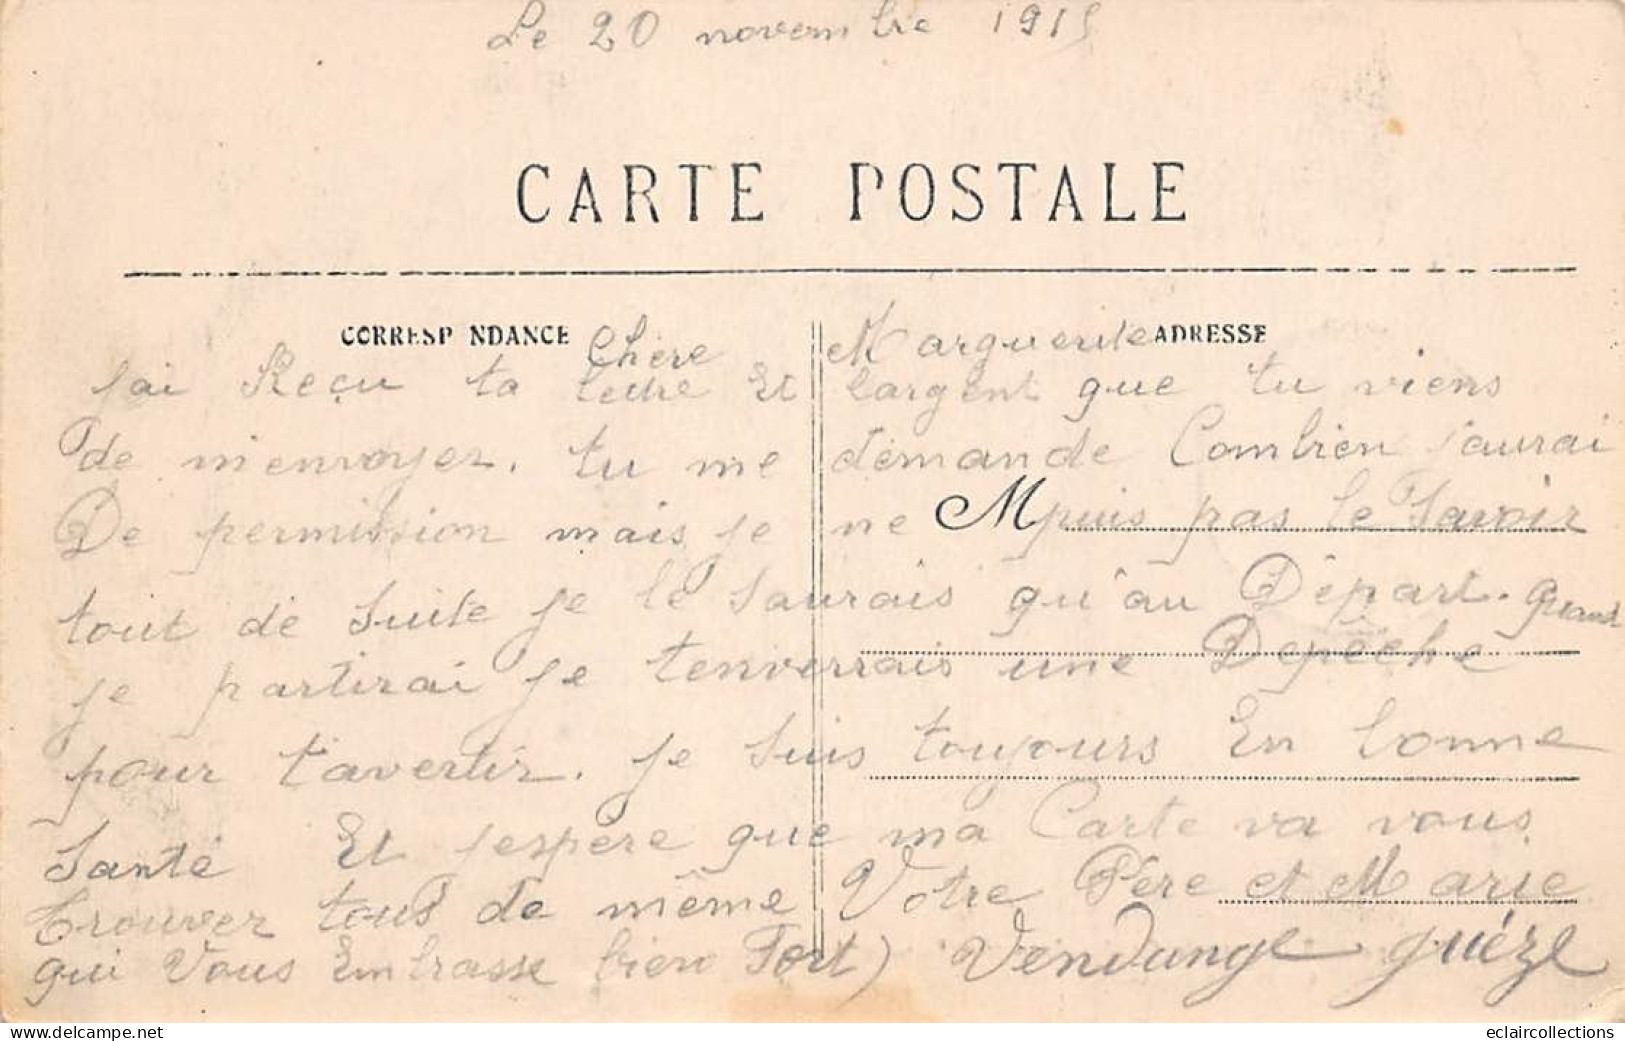 Le 20 novembre 1915
CARTE POSTALE
CORRESP NDANCE
ADRESSE
Chère Marguerite
Jai Reçu ta lettre Et largent que tu viens
de m'envoyer. tu me demande Combien J'aurai
De permission mais je ne M puis pas le Savoir
tout de Suite je le Saurais qu'au Départ. quand
je partirai je tenverrais une Depêche
pour t'avertir. je Suis toujours En bonne
Santé Et j'espère que ma Carte va vous
trouver tous de même Votre Père et Marie
qui Vous Embrasse bien Fort) Vendange guézé
eclaircollections